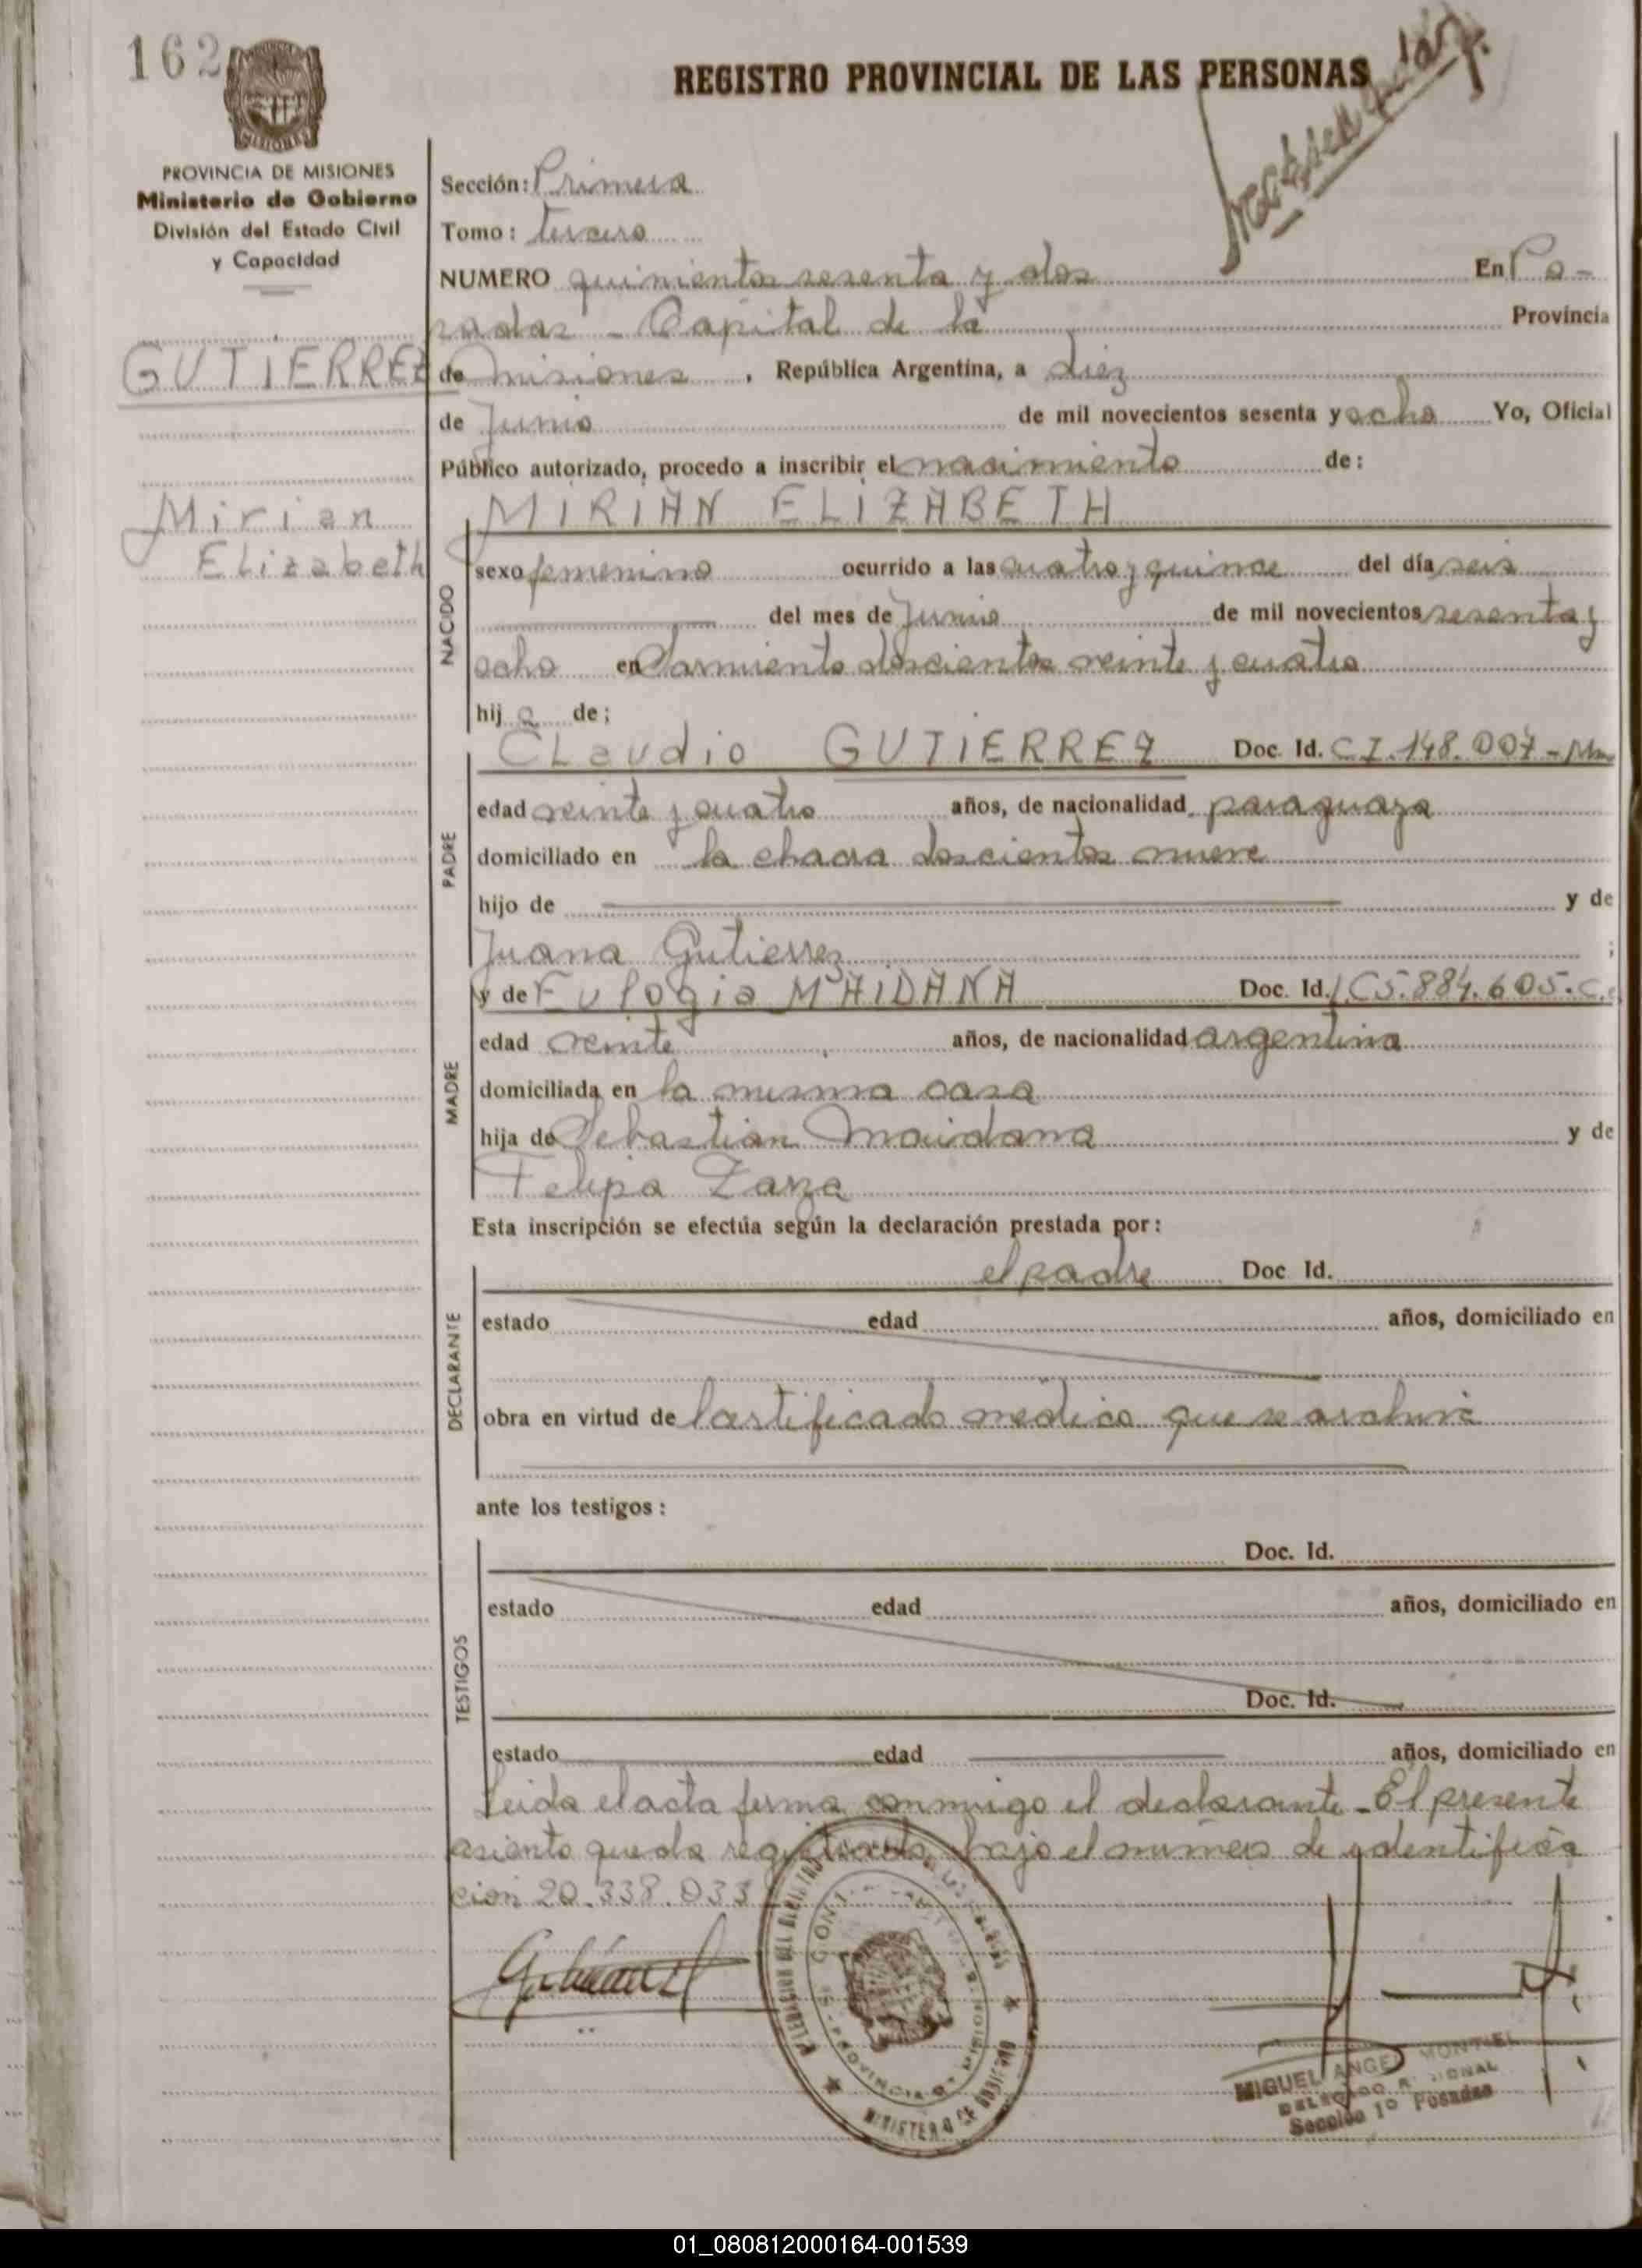 162
REGISTRO PROVINCIAL DE LAS PERSONAS
MISIONES
PROVINCIA DE MISIONES
Ministerio de Gobierno
División del Estado Civil
y Capacidad
GUTIERREZ
Mirian
Elizabeth
Sección: Primera
Tomo: tercero
NUMERO quinientos sesenta y dos En Po-
sadas - Capital de la Provincia
de Misiones, República Argentina, a diez
de Junio de mil novecientos sesenta y ocho Yo, Oficial
Público autorizado, procedo a inscribir el nacimiento de:
NACIDO
MIRIAN ELIZABETH
sexo femenino ocurrido a las cuatro y quince del día seis
del mes de Junio de mil novecientos sesenta y
ocho en Sarmiento doscientos veinte y cuatro
hija de;
PADRE
Claudio GUTIERREZ Doc. Id. C I. 148.007 - Mnes
edad veinte y cuatro años, de nacionalidad paraguaya
domiciliado en la chacra doscientos nueve
hijo de y de
Juana Gutierrez ;
MADRE
y de Eulogia MAIDANA Doc. Id. LC 5.884.605.C.
edad veinte años, de nacionalidad argentina
domiciliada en la misma casa
hija de Sebastian Maidana y de
Felipa Zarza
Esta inscripción se efectúa según la declaración prestada por:
DECLARANTE
el padre Doc Id.
estado edad años, domiciliado en
obra en virtud de Certificado médico que se archiva
ante los testigos:
TESTIGOS
Doc. Id.
estado edad años, domiciliado en
Doc. Id.
estado edad años, domiciliado en
Leida el acta firma conmigo el declarante - El presente
asiento queda registrado bajo el número de identifica
ción 20.338.033
MINISTERIO DE GOBIERNO
MIGUEL ANGEL MONTIEL
DELEGADO
Sección 1º Posadas
01_080812000164-001539